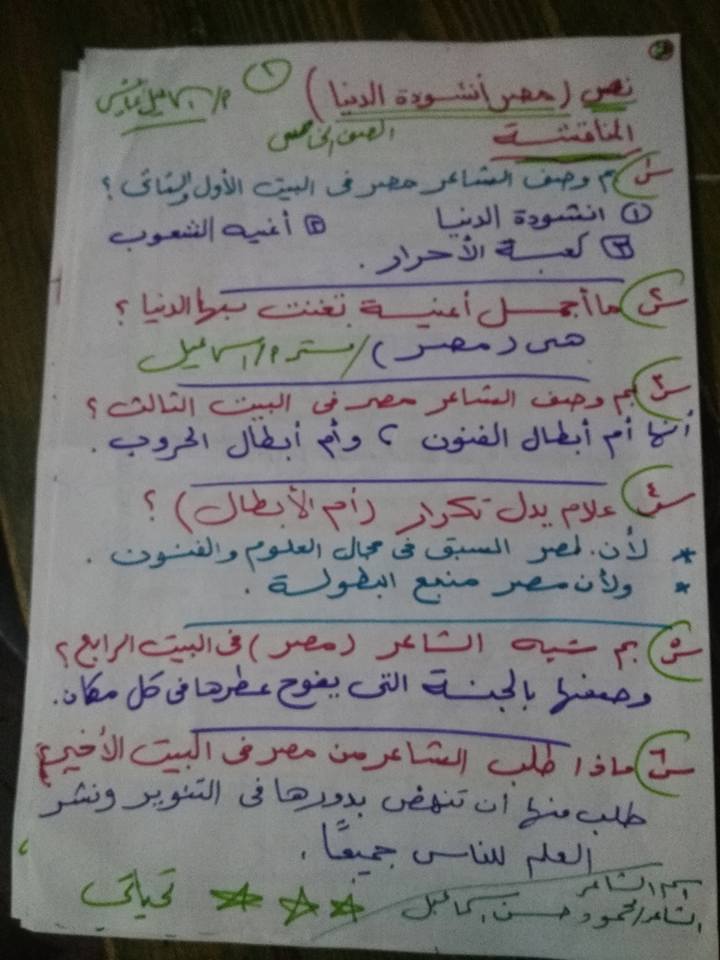 نص (مصر أنشودة الدنيا) ٢ م/ إسماعيل
المناقشة الصف الخامس
س١ بم وصف الشاعر مصر فى البيت الأول والثانى ؟
① انشودة الدنيا ② أغنيه الشعوب
③ كعبة الأحرار .
س٢ ما أجمل أغنية تغنت بها الدنيا ؟
هى (مصر) / مستر م/ إسماعيل
س٣ بم وصف الشاعر مصر فى البيت الثالث ؟
أنها أم أبطال الفنون ، وأم أبطال الحروب .
س٤ علام يدل تكرار (أم الأبطال) ؟
* لأن لمصر السبق فى مجال العلوم والفنون .
* ولأن مصر منبع البطولة .
س٥ بم شبه الشاعر (مصر) فى البيت الرابع ؟
وصفها بالجنة التى يفوح عطرها فى كل مكان .
س٦ ماذا طلب الشاعر من مصر فى البيت الأخير ؟
طلب منها أن تنهض بدورها فى التنوير ونشر
العلم للناس جميعًا .
اسم الشاعر
الشاعر/ محمود حسن إسماعيل تحياتى